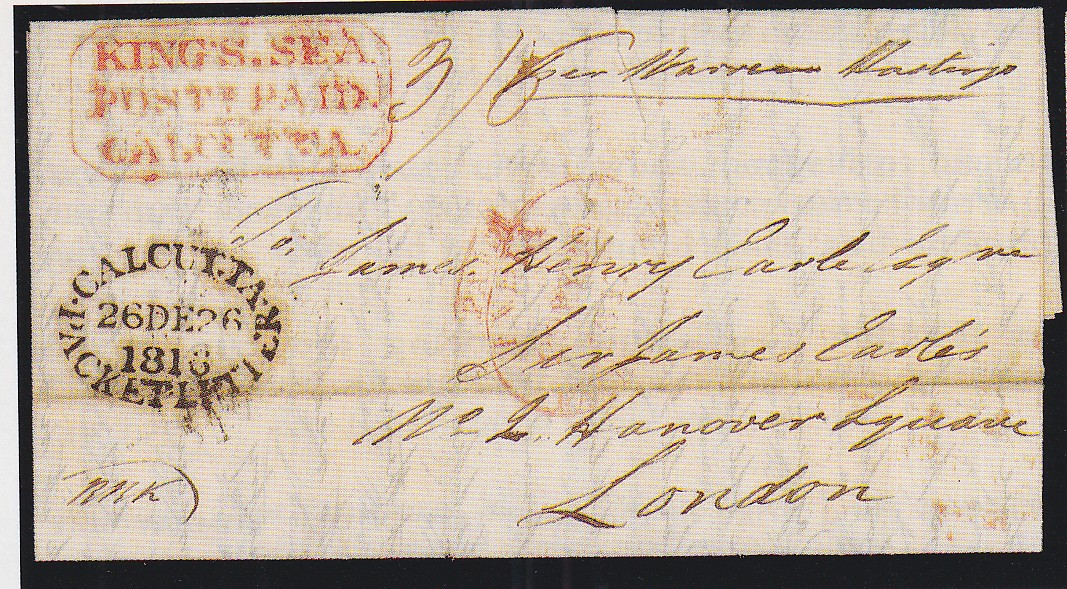 KING'S.SEA
POST PAID.
CALCUTTA.
3/ per Warren Hastings
To.
James Henry Earle Esqre
CALCUTTA.
26DE26
1818
PACKET.LETTER
Sir James Earle's
No 2. Hanover Square
London